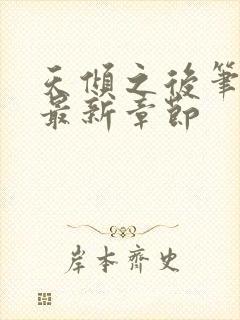 天倾之後筆
最新章節
岸本齊史